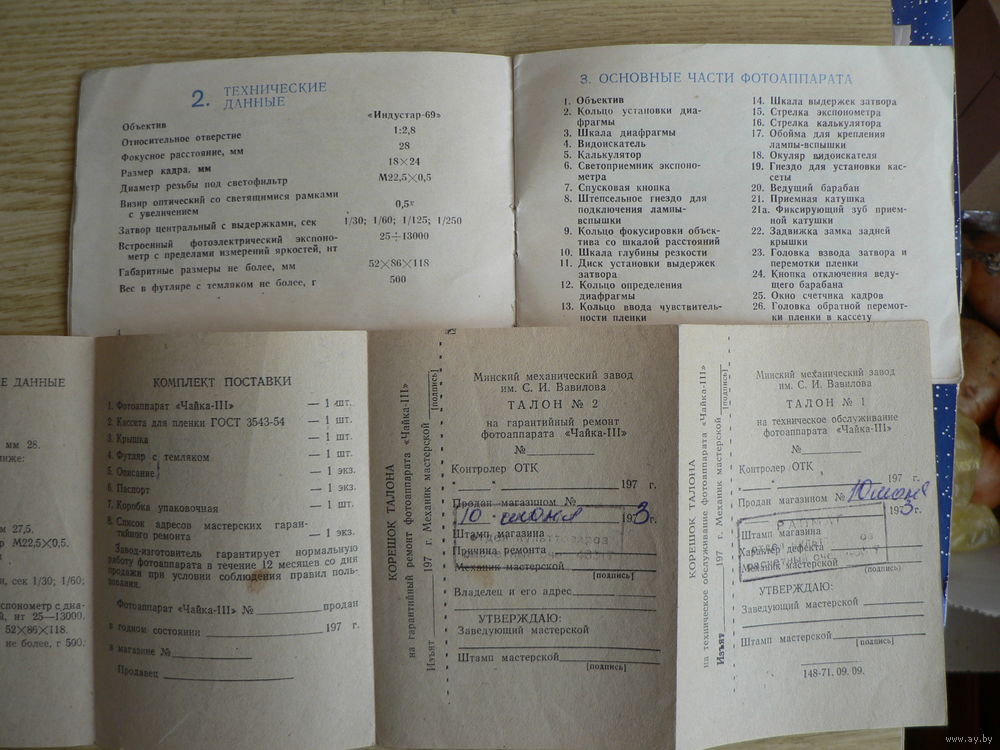 2. ТЕХНИЧЕСКИЕ
ДАННЫЕ
Объектив «Индустар-69»
Относительное отверстие 1:2,8
Фокусное расстояние, мм 28
Размер кадра, мм 18×24
Диаметр резьбы под светофильтр М22,5×0,5
Визир оптический со светящимися рамками
с увеличением 0,5×
Затвор центральный с выдержками, сек 1/30; 1/60; 1/125; 1/250
Встроенный фотоэлектрический экспоно-
метр с пределами измерений яркостей, нт 25÷13000
Габаритные размеры не более, мм 52×86×118
Вес в футляре с темляком не более, г 500
3. ОСНОВНЫЕ ЧАСТИ ФОТОАППАРАТА
1. Объектив
2. Кольцо установки диа-
фрагмы
3. Шкала диафрагмы
4. Видоискатель
5. Калькулятор
6. Светоприемник экспоно-
метра
7. Спусковая кнопка
8. Штепсельное гнездо для
подключения лампы-
вспышки
9. Кольцо фокусировки объек-
тива со шкалой расстояний
10. Шкала глубины резкости
11. Диск установки выдержек
затвора
12. Кольцо определения
диафрагмы
13. Кольцо ввода чувствитель-
ности пленки
14. Шкала выдержек затвора
15. Стрелка экспонометра
16. Стрелка калькулятора
17. Обойма для крепления
лампы-вспышки
18. Окуляр видоискателя
19. Гнездо для установки кас-
сеты
20. Ведущий барабан
21. Приемная катушка
21а. Фиксирующий зуб прием-
ной катушки
22. Задвижка замка задней
крышки
23. Головка взвода затвора и
перемотки пленки
24. Кнопка отключения веду-
щего барабана
25. Окно счетчика кадров
26. Головка обратной перемот-
ки пленки в кассету
Е ДАННЫЕ
мм 28.
иже:
м 27,5.
р М22,5×0,5.
и, сек 1/30; 1/60;
спонометр с диа-
й, нт 25—13000.
52×86×118.
не более, г 500.
КОМПЛЕКТ ПОСТАВКИ
1. Фотоаппарат «Чайка-III» — 1 шт.
2. Кассета для пленки ГОСТ 3543-54 — 1 шт.
3. Крышка — 1 шт.
4. Футляр с темляком — 1 шт.
5. Описание — 1 экз.
6. Паспорт — 1 экз.
7. Коробка упаковочная — 1 шт.
8. Список адресов мастерских гаран-
тийного ремонта — 1 экз.
Завод-изготовитель гарантирует нормальную
работу фотоаппарата в течение 12 месяцев со дня
продажи при условии соблюдения правил поль-
зования.
Фотоаппарат «Чайка-III» № продан
в годном состоянии 197 г.
в магазине №
Продавец
КОРЕШОК ТАЛОНА
на гарантийный ремонт фотоаппарата «Чайка-III»
Изъят 197 г. Механик мастерской [подпись]
Минский механический завод
им. С. И. Вавилова
ТАЛОН № 2
на гарантийный ремонт
фотоаппарата «Чайка-III»
№
Контролер ОТК
197 г.
Продан магазином №
10 июня 1973 г.
Штамп магазина
Причина ремонта
Механик мастерской
[подпись]
Владелец и его адрес
УТВЕРЖДАЮ:
Заведующий мастерской
Штамп мастерской
[подпись]
КОРЕШОК ТАЛОНА
на техническое обслуживание фотоаппарата «Чайка-III»
Изъят 197 г. Механик мастерской [подпись]
Минский механический завод
им. С. И. Вавилова
ТАЛОН № 1
на техническое обслуживание
фотоаппарата «Чайка-III»
№
Контролер ОТК
197 г.
Продан магазином № 10 июня
1973 г.
Штамп магазина
Характер дефекта
Механик мастерской
(подпись)
УТВЕРЖДАЮ:
Заведующий мастерской
Штамп мастерской
[подпись]
148-71. 09. 09.
www.ay.by